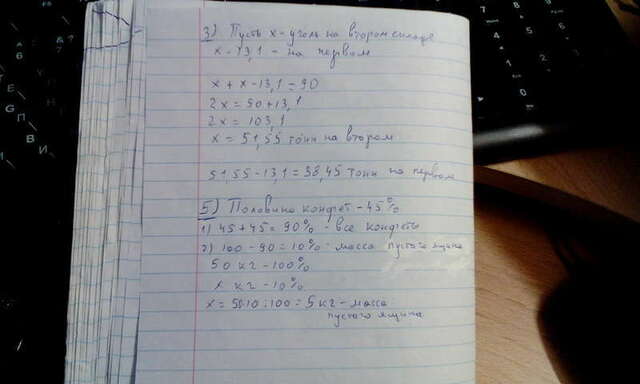 3) Пусть x - уголь на втором складе
x - 13,1 - на первом
x + x - 13,1 = 90
2x = 90 + 13,1
2x = 103,1
x = 51,55 тонн на втором
51,55 - 13,1 = 38,45 тонн на первом
5) Половина конфет - 45%
1) 45 + 45 = 90% - все конфеты
2) 100 - 90 = 10% - масса пустого ящика
50 кг - 100%
x кг - 10%
x = 50·10:100 = 5 кг - масса
пустого ящика